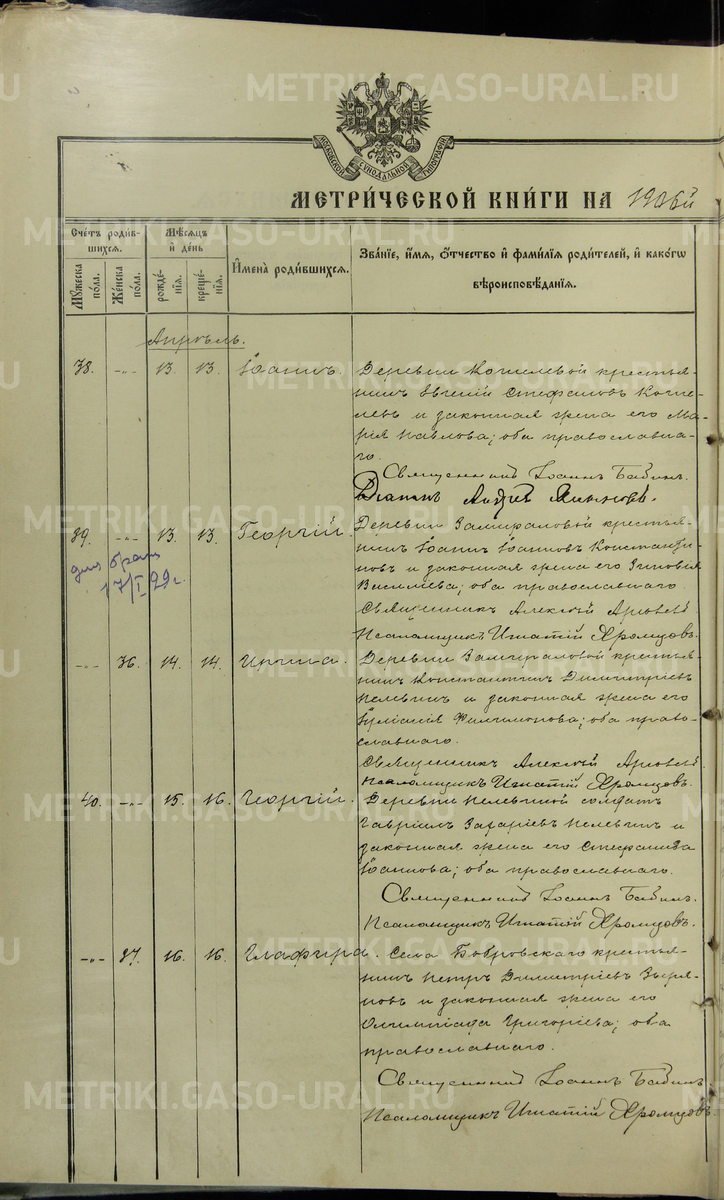 METRIKI.GASO-URAL.RU
МОСКОВСКОЙ СѴНОДАЛЬНОЙ ТИПОГРАФІИ
МЕТРИ́ЧЕСКОЙ КНИ́ГИ НА 1906й
Сче́тъ роди́в-
шихсѧ.
Мꙋ́жеска по́ла.
Же́нска по́ла.
Мѣ́сѧцъ
и҆ де́нь
рожде́-нїѧ.
креще́-нїѧ.
И҆мена̀ роди́вшихсѧ.
Зва́нїе, и҆́мѧ, ѻ҆́тчество и҆ фами́лїѧ роди́телей, и҆ како́гѡ
вѣроисповѣ́данїѧ.
Апрѣль.
38. -„- 13. 13. Іоаннъ. Деревни Кошелевой крестья-
нинъ Евгеній Стефановъ Коше-
левъ и законная жена его Ма-
рія Павлова; оба православна-
го.
Священникъ Іоаннъ Бабинъ.
Діаконъ
39. -„- 13. 13. Георгій. Деревни Замираловой крестья-
для брака
17/I 29 г.
нинъ Іоаннъ Іоанновъ Константи-
новъ и законная жена его Зиновія
Василіева; оба православнаго.
Священникъ Алексій
Псаломщикъ Игнатій Хромцовъ.
-„- 36. 14. 14. Ирина. Деревни Замираловой крестья-
нинъ Константинъ Димитріевъ
Пелевинъ и законная жена его
Іуліанія Филимонова; оба право-
славнаго.
Священникъ Алексій
Псаломщикъ Игнатій Хромцовъ.
40. -„- 15. 16. Георгій. Деревни Пелевиной солдатъ
Гавріилъ Захаріевъ Пелевинъ и
законная жена его Стефанида
Іоаннова; оба православнаго.
Священникъ Іоаннъ Бабинъ.
Псаломщикъ Игнатій Хромцовъ.
-„- 37. 16. 16. Глафира. Села Бобровскаго крестья-
нинъ Петръ Димитріевъ Зыря-
новъ и законная жена его
Олимпіада Григоріева; оба
православнаго.
Священникъ Іоаннъ Бабинъ.
Псаломщикъ Игнатій Хромцовъ.